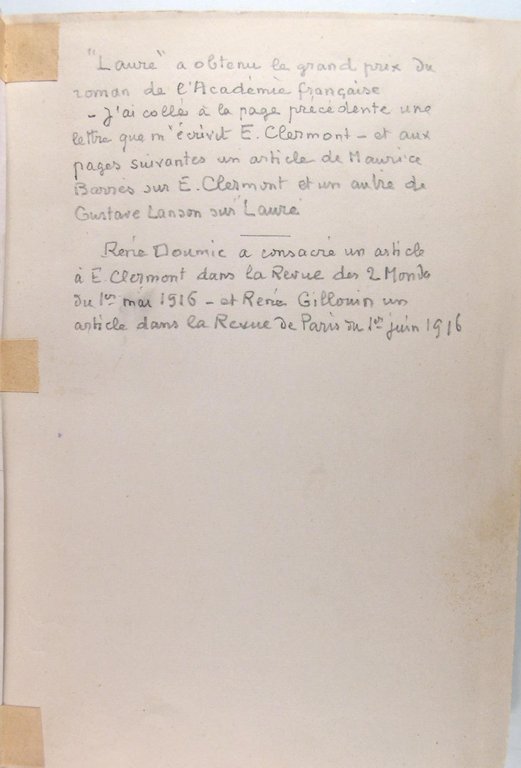 "Laure" a obtenu le grand prix du
roman de l'Académie française
- J'ai collé à la page précédente une
lettre que m'écrivit E. Clermont - et aux
pages suivantes un article de Maurice
Barrès sur E. Clermont et un autre de
Gustave Lanson sur "Laure"
René Doumic a consacré un article
à E. Clermont dans la Revue des 2 Mondes
du 1er mai 1916 - et René Gillouin un
article dans la Revue de Paris du 1er juin 1916